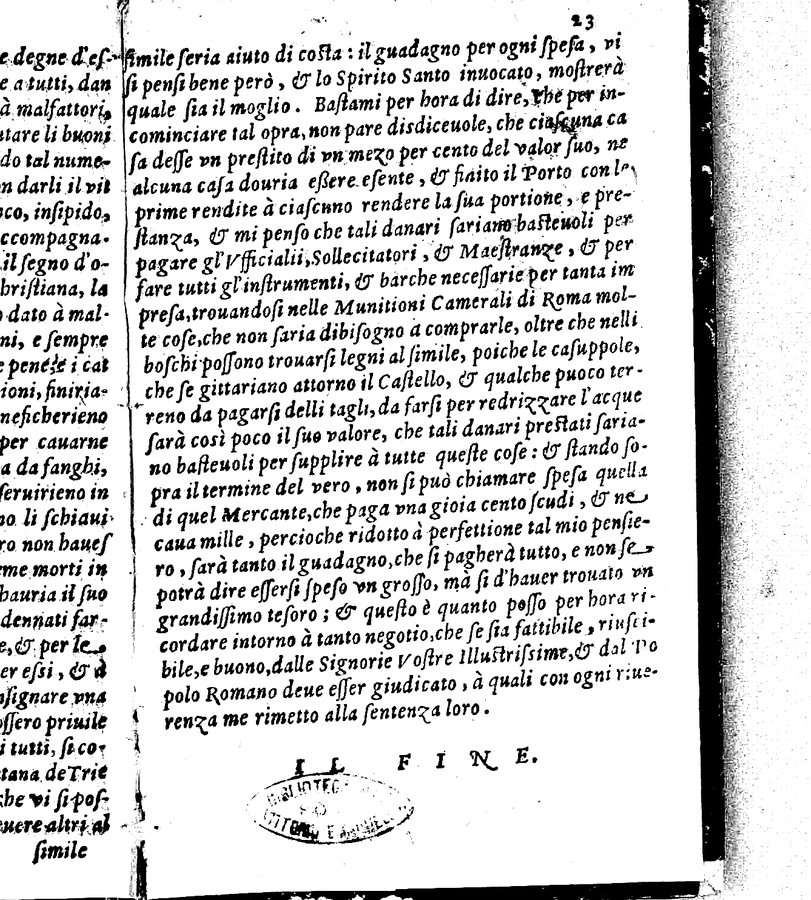 e degne d'es-
e a tutti, dan
à malfattori,
utare li buoni
do tal nume-
n darli il vit
oco, insipido,
ccompagna-
il segno d'o-
hristiana, la
o dato à mal-
ni, e sempre
e i cat
ioni, finiria-
neficherieno
per cauarne
a da fanghi,
seruirieno in
no li schiaui
ro non haues
eme morti in
hauria il suo
dennati far-
e, & per le
er essi, & à
nsignare vna
ossero priuile
i tutti, si co-
tana de Trie
che vi si pos-
euere altri al
simile
23
simile seria aiuto di costa : il guadagno per ogni spesa, vi
si pensi bene però, & lo Spirito Santo inuocato, mostrerà
quale sia il moglio. Bastami per hora di dire, che per in-
cominciare tal opra, non pare disdiceuole, che ciascuna ca
sa desse vn prestito di vn mezo per cento del valor suo, ne
alcuna casa douria essere esente, & finito il Porto con le
prime rendite à ciascuno rendere la sua portione, e pre-
stanza, & mi penso che tali danari sariano basteuoli per
pagare gl'Vfficialii, Sollecitatori, & Maestranze, & per
fare tutti gl'instrumenti, & barche necessarie per tanta im
presa, trouandosi nelle Munitioni Camerali di Roma mol-
te cose, che non saria dibisogno a comprarle, oltre che nelli
boschi possono trouarsi legni al simile, poiche le casuppole,
che se gittariano attorno il Castello, & qualche puoco ter-
reno da pagarsi delli tagli, da farsi per redrizzare l'acque
sarà così poco il suo valore, che tali danari prestati saria-
no basteuoli per supplire à tutte queste cose : & stando so-
pra il termine del vero, non si può chiamare spesa quella
di quel Mercante, che paga vna gioia cento scudi, & ne
caua mille, percioche ridotto à perfettione tal mio pensie-
ro, sarà tanto il guadagno, che si pagherà tutto, e non se
potrà dire essersi speso vn grosso, mà si d'hauer trouato vn
grandissimo tesoro ; & questo è quanto posso per hora ri-
cordare intorno à tanto negotio, che se sia fattibile, riusci-
bile, e buono, dalle Signorie Vostre Illustrissime, & dal Po
polo Romano deue esser giudicato, à quali con ogni riue-
renza me rimetto alla sentenza loro.
IL FINE.
BIBLIOTEC
VITTORIO EMANUELE